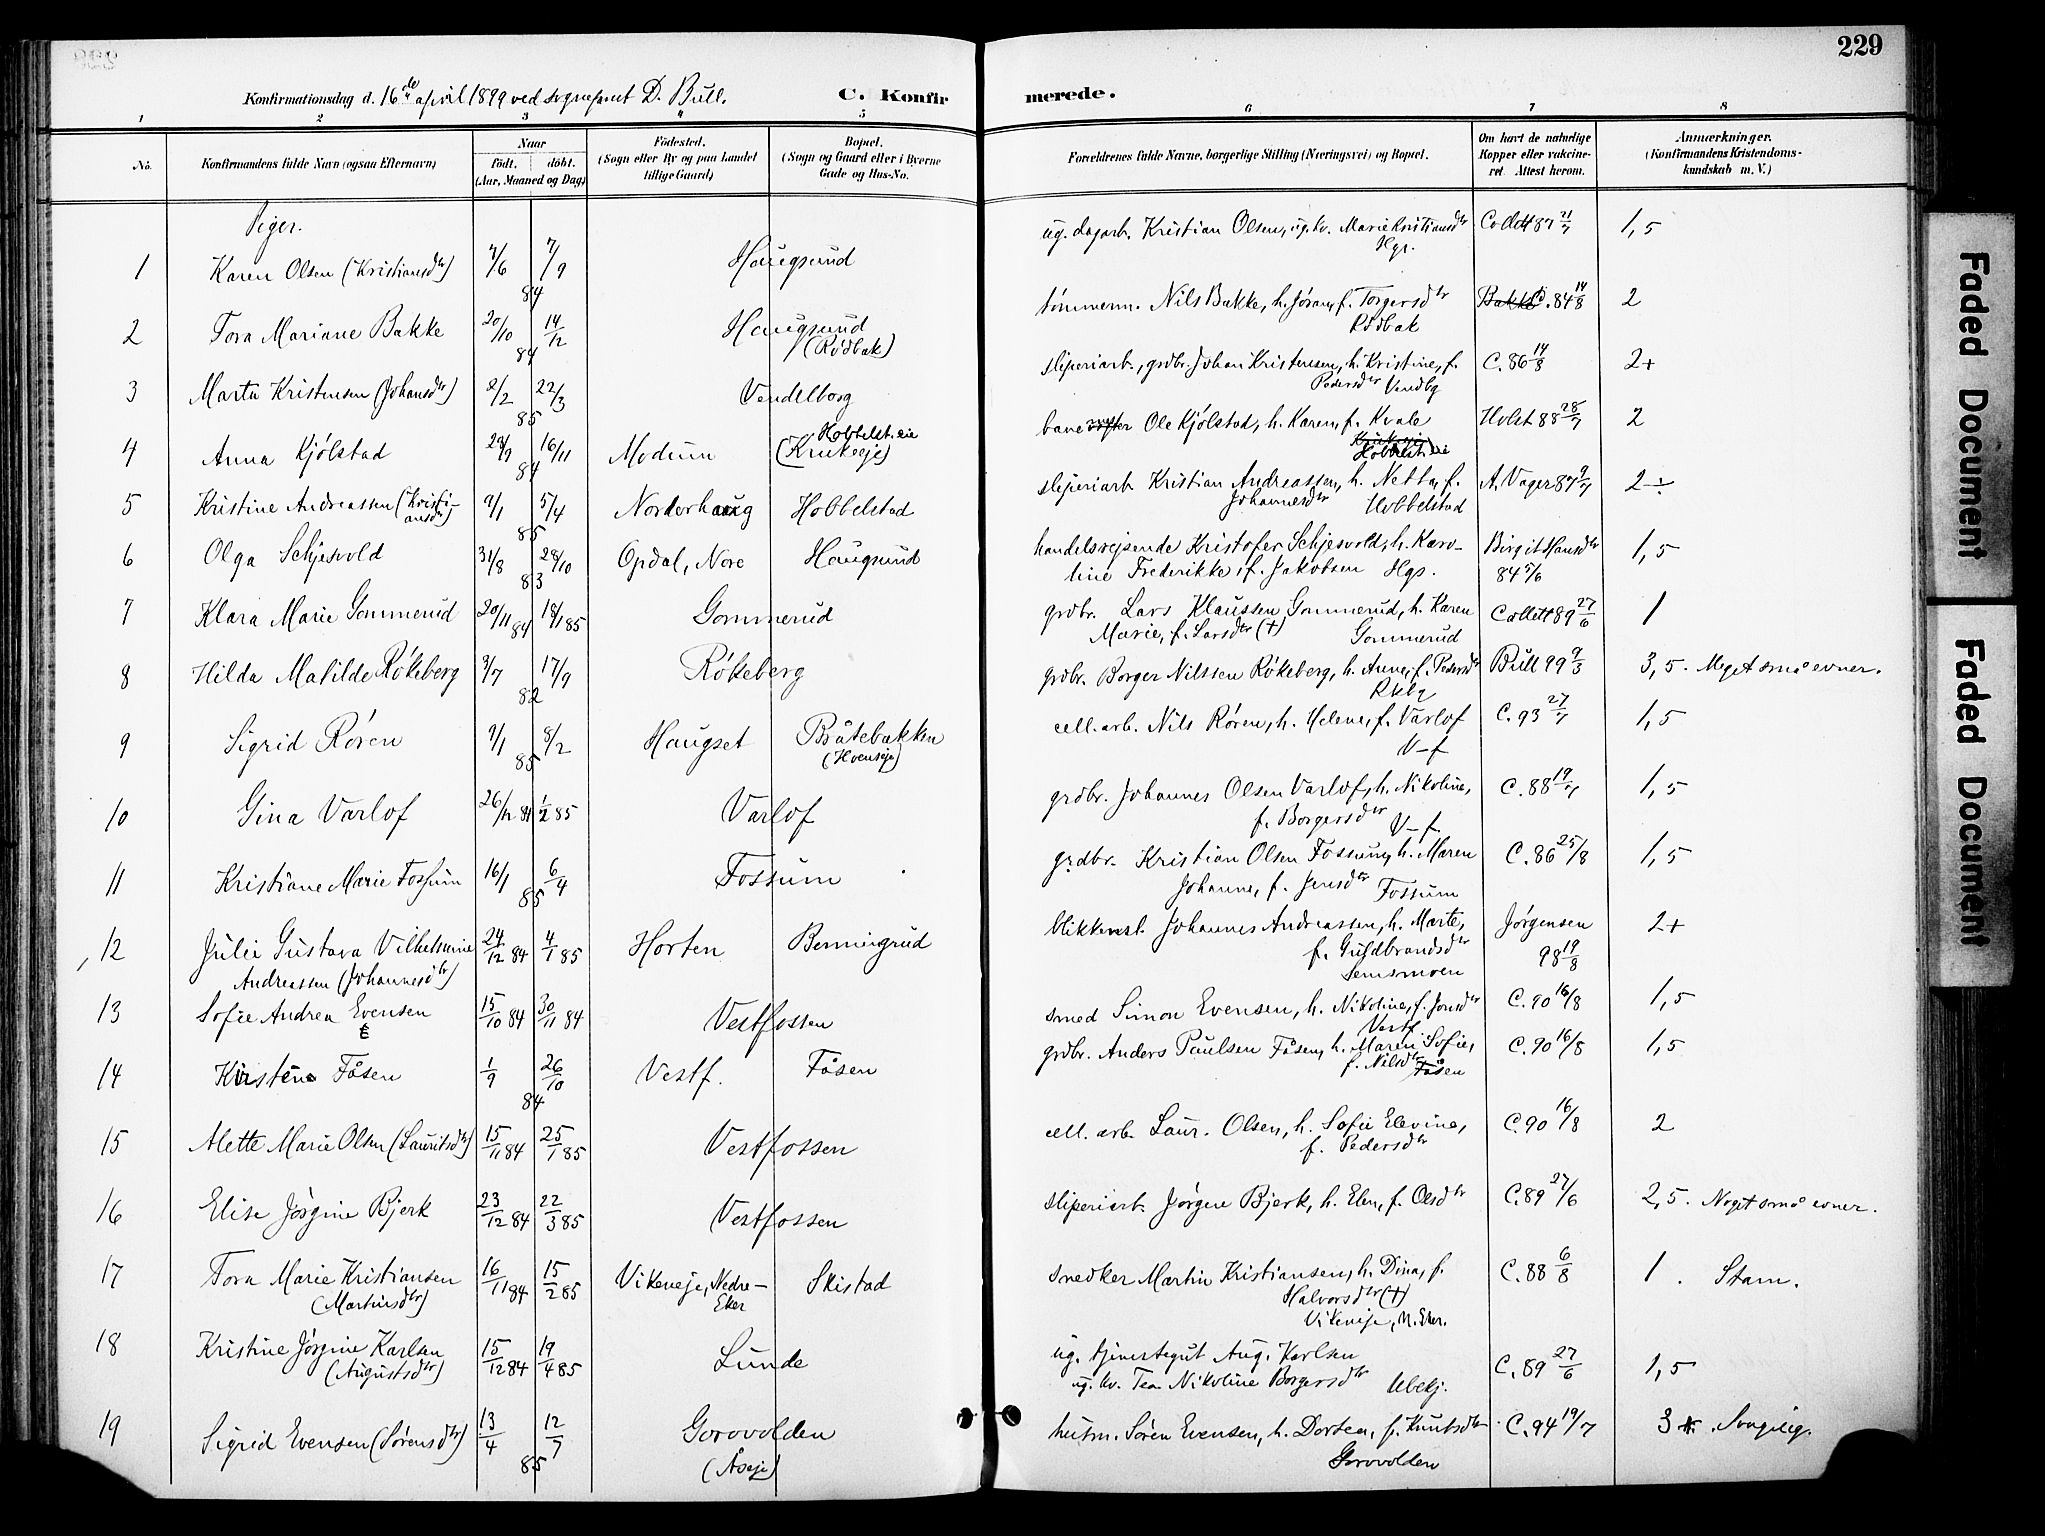 229
Konfirmationsdag d. 16de april 1899 ved sogneprest D. Bull.
C. Konfirmerede.
1 2 3 4 5 6 7 8
No. Konfirmandens fulde Navn (ogsaa Efternavn) Naar født. døbt. (Aar, Maaned og Dag) Fødested. (Sogn eller By og paa Landet tillige Gaard) Bopæl. (Sogn og Gaard eller i Byerne Gade og Hus-No. Forældrenes fulde Navne, borgerlige Stilling (Næringsvei) og Bopæl. Om havt de naturlige Kopper eller vakcineret. Attest herom. Anmærkninger. (Konfirmandens Kristendomskundskab m. V.)
Piger.
1 Karen Olsen (Kristiansdtr) 7/6 7/9 84 Haugsund ug. dagarb. Kristian Olsen, ug. kv. Marie Kristiansdtr Hgs. Collett 87 21/7 1,5
2 Tora Mariane Bakke 20/10 14/12 84 Haugsund (Rødbak) tømmerm. Nils Bakke, h. Jøran, f. Torgersdtr Rødbak C. 84 14/8 2
3 Marta Kristensen (Johansdtr) 2/2 22/3 85 Vendelborg sliperiarb., grdbr. Johan Kristensen, h. Kristine, f. Pedersdtr Vendbg C. 86 14/8 2+
4 Anna Kjølstad 29/9 16/11 84 Modum Hobbelst. eie (Krukeeje) bane Ole Kjølstad, h. Karen, f. Kvale Hobbelst. eie Holst 88 28/7 2
5 Kristine Andreassen (Kristiansdtr) 9/1 5/4 85 Norderhaug Hobbelstad sliperiarb. Kristian Andreassen, h. Netta, f. Johannesdtr Hobbelstad A. Vager 87 9/7 2÷
6 Olga Schjesvold 31/8 28/10 83 Opdal, Nore Haugsund handelsrejsende Kristofer Schjesvold, h. Karoline Frederikke, f. Jakobsen Hgs. Birgit Hansdtr 84 5/6 1,5
7 Klara Marie Gommerud 20/11 84 18/1 85 Gommerud grdbr. Lars Klaussen Gommerud, h. Karen Marie, f. Larsdtr (+) Gommerud Collett 89 27/6 1
8 Hilda Matilde Røkeberg 3/7 17/9 82 Røkeberg grdbr. Borger Nilssen Røkeberg, h. Anne, f. Pedersdtr Rkbg Bull 99 9/3 3,5. Meget små evner.
9 Sigrid Røren 9/1 8/2 85 Haugset Bråtebakken (Hvenseje) cell. arb. Nils Røren, h. Helene, f. Varlof V-f C. 93 27/7 1,5
10 Gina Varlof 26/12 84 1/2 85 Varlof grdbr. Johannes Olsen Varlof, h. Nikoline, f. Borgersdtr V-f. C. 88 19/7 1,5
11 Kristiane Marie Fossum 16/1 6/4 85 Fossum grdbr. Kristian Olsen Fossum, h. Maren Johanne, f. Jensdtr Fossum C. 86 25/8 1,5
12 Julie Gustava Vilhelmine Andreassen (Johannesdtr) 24/12 84 4/1 85 Horten Bermingrud blikkensl. Johannes Andreassen, h. Marte, f. Guldbrandsdtr Semsmoen Jørgensen 98 19/8 2+
13 Sofie Andrea Evensen 15/10 84 30/11 84 Vestfossen smed Simon Evensen, h. Nikoline, f. Jonsdtr Vestf. C. 90 16/8 1,5
14 Kirstene Fåsen 1/9 26/10 84 Vestf. Fåsen grdbr. Anders Paulsen Fåsen, h. Maren Sofie, f. Nilsdtr Fåsen C. 90 16/8 1,5
15 Alette Marie Olsen (Lauritsdtr) 15/11 84 25/1 85 Vestfossen cell. arb. Laur. Olsen, h. Sofie Elevine, f. Pedersdtr C. 90 16/8 2
16 Elise Jørgine Bjerk 23/12 84 22/3 85 Vestfossen sliperiarb. Jørgen Bjerk, h. Elen, f. Olsdtr C. 89 27/6 2,5. Noget små evner.
17 Tora Marie Kristiansen (Martinsdtr) 16/11 84 15/2 85 Vikeneje, Nedre-Eker Skistad snedker Martin Kristiansen, h. Dina, f. Halvorsdtr (+) Vikeneje, N. Eker. C. 88 6/8 1. Stam.
18 Kristine Jørgine Karlsen (Augustsdtr) 15/12 84 19/4 85 Lunde ug. tjenestegut Aug. Karlsen ug. kv. Tea Nikoline Borgersdtr Ubekj. C. 89 27/6 1,5
19 Sigrid Evensen (Sørensdtr) 13/4 12/7 85 Gorovolden (Åseje) husm. Søren Evensen, h. Dortea, f. Knutsdtr Gorovolden C. 94 19/7 3 . Svagelig.
Faded Document
Faded Document